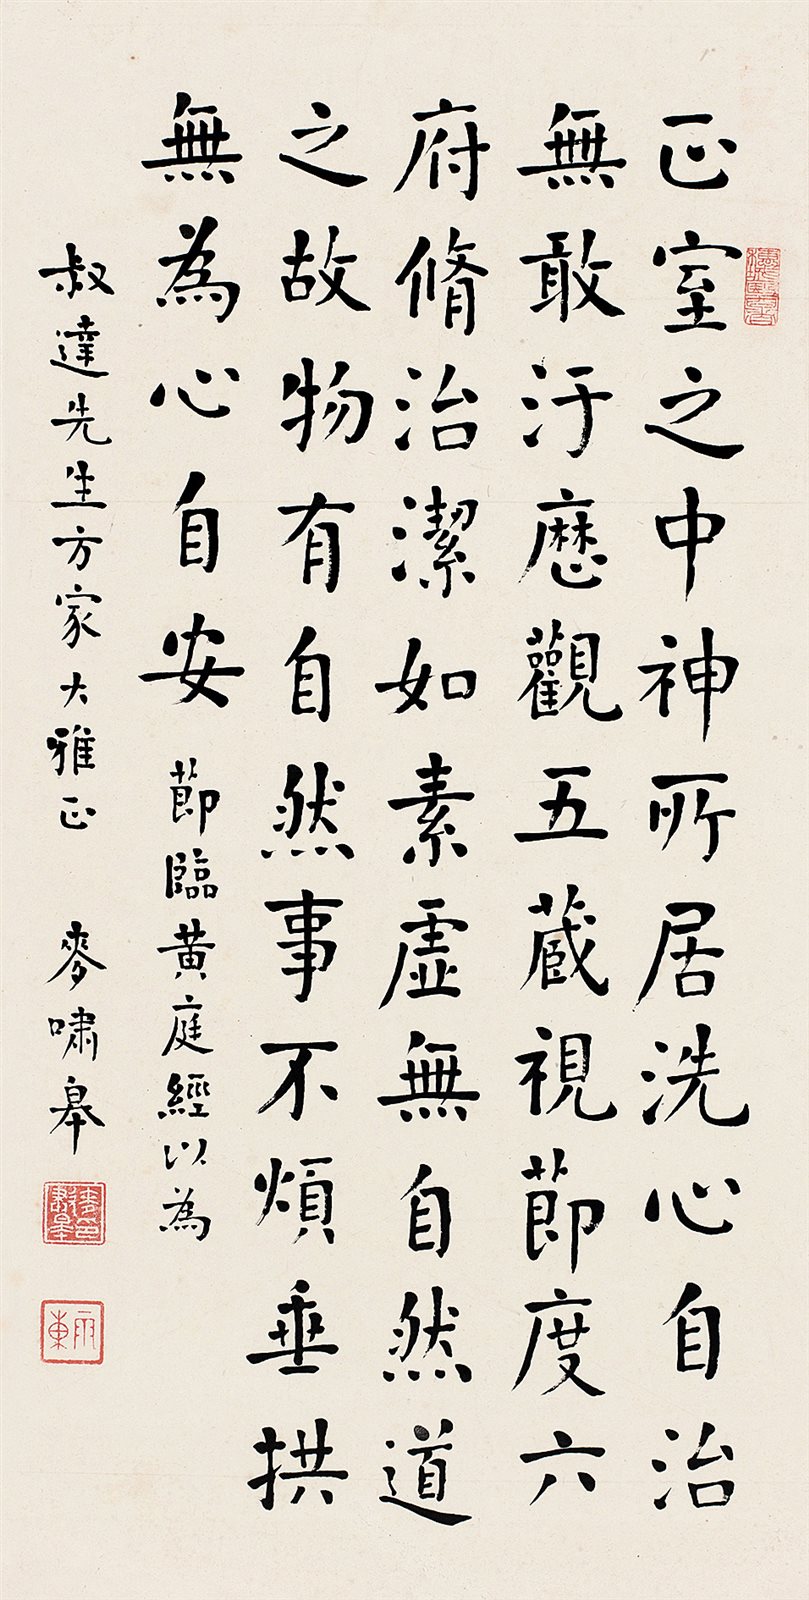 正室之中神所居洗心自治
無敢汙歷觀五蔵視節度六
府脩治潔如素虛無自然道
之故物有自然事不煩垂拱
無為心自安 節臨黃庭經以為
叔達先生方家大雅正 麥嘯皋